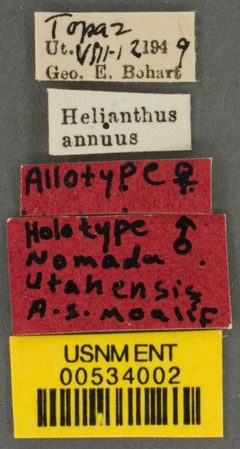 Topaz
Ut. VIII-12 1949
Geo. E. Bohart
Helianthus
annuus
Allotype ♀
Holotype ♂
Nomada
Utahensis
A.S. Moalif
USNM ENT
00534002